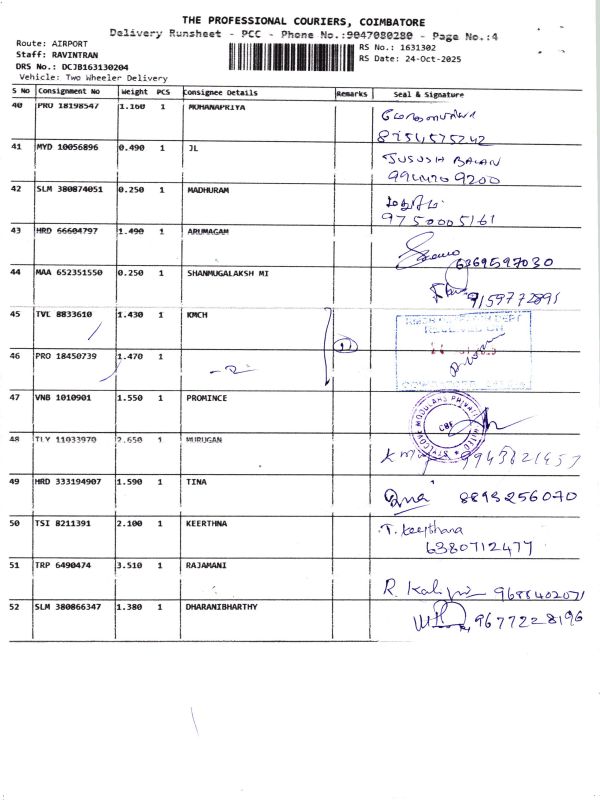 THE PROFESSIONAL COURIERS, COIMBATORE
Delivery Runsheet - PCC - Phone No.:9047080280 - Page No.:4
Route: AIRPORT
Staff: RAVINTRAN
DRS No.: DCJB163130204
Vehicle: Two Wheeler Delivery
RS No.: 1631302
RS Date: 24-Oct-2025
S No Consignment No Weight PCS Consignee Details Remarks Seal & Signature
40 PRO 18198547 1.160 1 MOHANAPRIYA
8754575242
41 MYD 10056896 0.490 1 JL
BALAN
9944709200
42 SLM 380874051 0.250 1 MADHURAM
9750005161
43 HRD 66604797 1.490 1 ARUMAGAM
6369597030
44 MAA 652351550 0.250 1 SHANMUGALAKSH MI
9159772895
45 TVL 8833610 1.430 1 KMCH
RECEIVED ON
46 PRO 18450739 1.470 1
47 VNB 1010901 1.550 1 PROMINCE
48 TLY 11033970 2.650 1 MURUGAN
49 HRD 333194907 1.590 1 TINA
8893256070
50 TSI 8211391 2.100 1 KEERTHNA
T. Keerthana
6380712477
51 TRP 6490474 3.510 1 RAJAMANI
R. 9688402071
52 SLM 380866347 1.380 1 DHARANIBHARTHY
9677228196